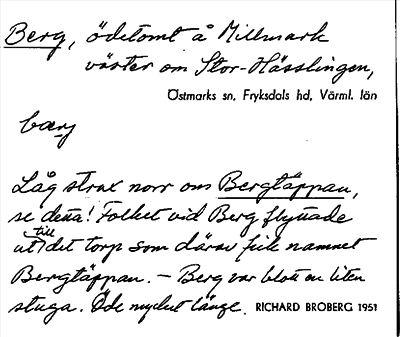 Berg, ödetomt å Millmark
väster om Stor-Hässlingen,
Östmarks sn, Fryksdals hd, Värml. län
bærj
Låg strax norr om Bergtäppan,
se detta! Folket vid Berg flyttade
till
ut det torp som därav fick namnet
Bergtäppan. – Berg var blott en liten
stuga. Öde mycket länge. RICHARD BROBERG 1951